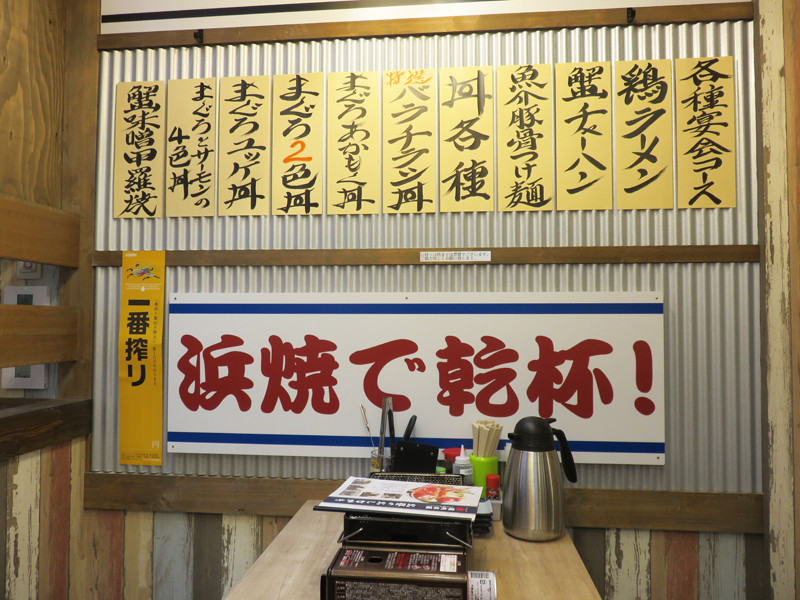 各種宴会コース
鶏ラーメン
蟹チャーハン
魚介豚骨つけ麺
丼各種
特選
バラチラシ丼
まぐろあかもく丼
まぐろ2色丼
まぐろユッケ丼
まぐろとサーモンの
4色丼
蟹味噌甲羅焼
一番搾り
浜焼で乾杯!